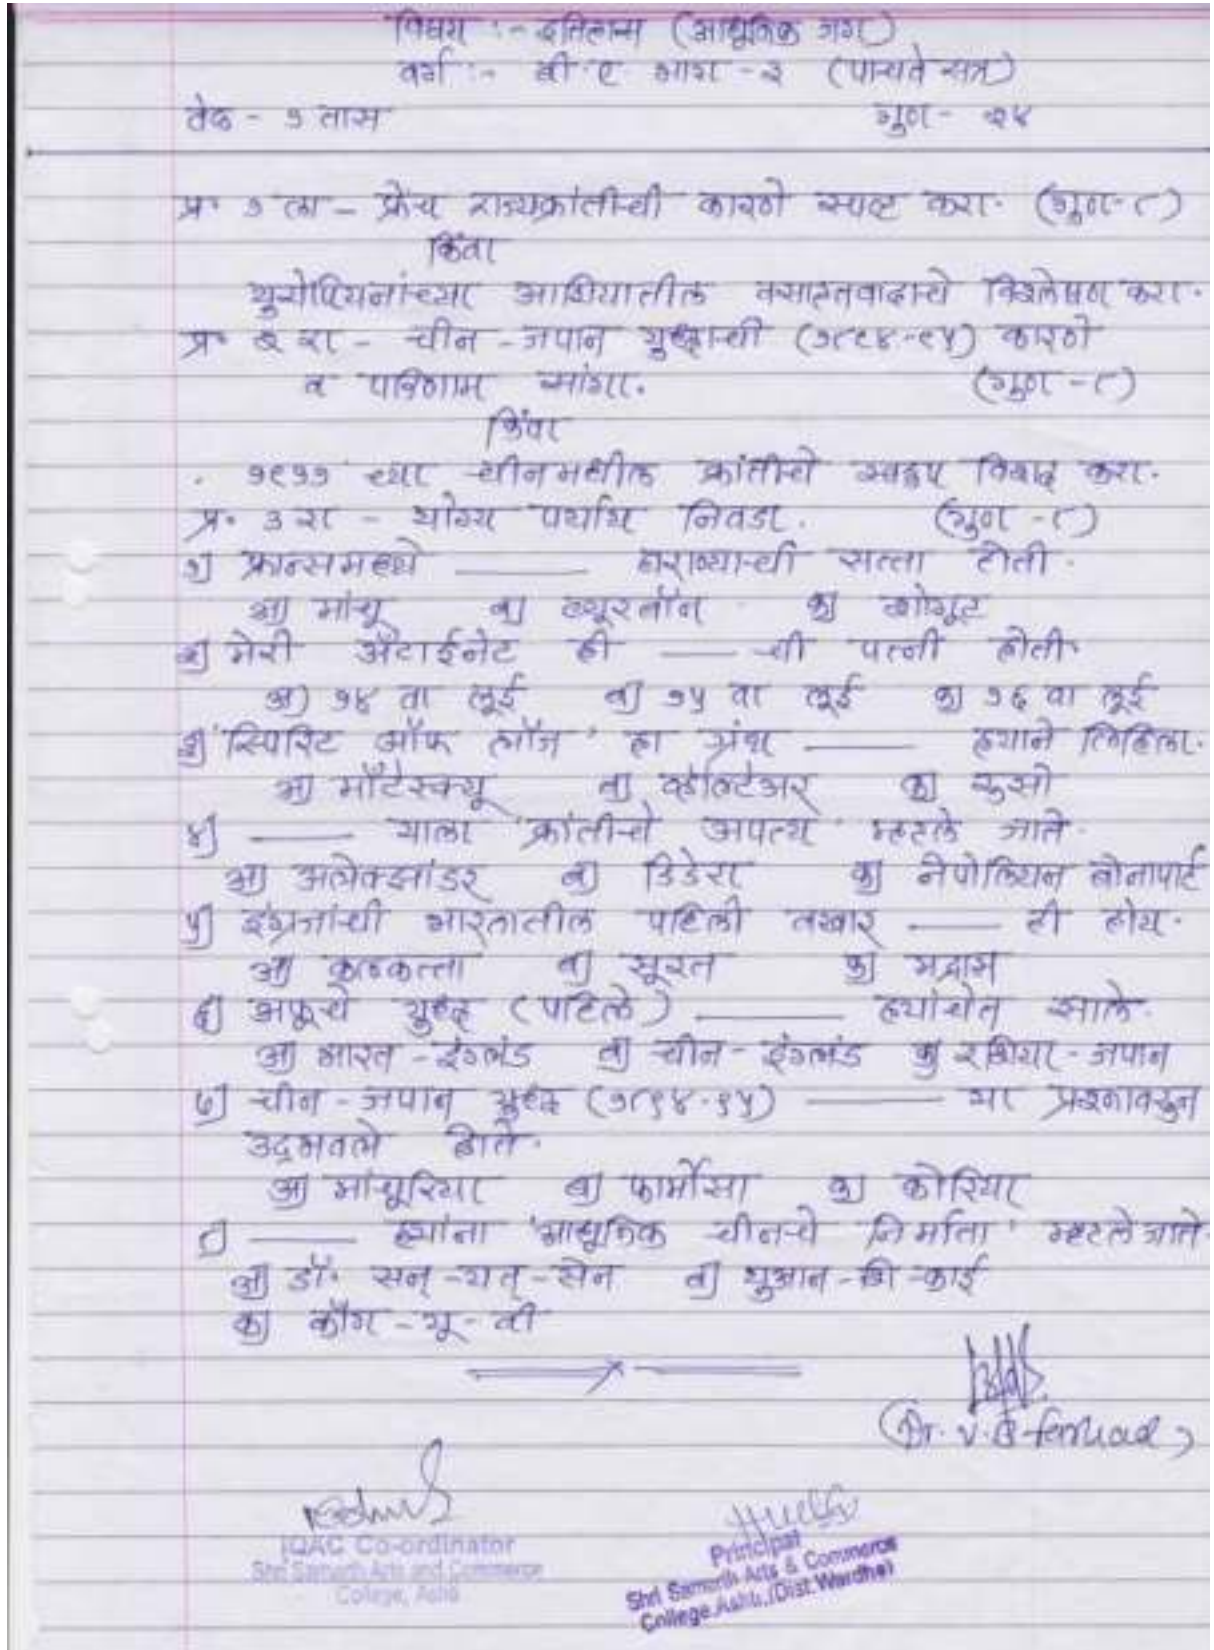 विषय :- इतिहास (आधुनिक जग)
वर्ग :- बी. ए. भाग - ३ (पाचवे सत्र)
वेळ - १ तास गुण - २४
प्र. १ ला - फ्रेंच राज्यक्रांतीची कारणे स्पष्ट करा. (गुण-८)
किंवा
युरोपियनांच्या आशियातील वसाहतवादाचे विश्लेषण करा.
प्र. २ रा - चीन-जपान युध्दाची (१८९४-९५) कारणे
व परिणाम सांगा. (गुण-८)
किंवा
१९११ च्या चीनमधील क्रांतीचे स्वरूप विशद करा.
प्र. ३ रा - योग्य पर्याय निवडा. (गुण-८)
१] फ्रान्समध्ये ——— घराण्याची सत्ता होती.
अ] मांचू ब] ब्यूरबॉन क] शोगूट
२] मेरी अँटाईनेट ही —— ची पत्नी होती.
अ) १४ वा लूई ब] १५ वा लूई क] १६ वा लूई
३] 'स्पिरिट ऑफ लॉज' हा ग्रंथ ——— ह्याने लिहिला.
अ] माँटेस्क्यू ब] व्हॉल्टेअर क] रुसो
४] ——— याला 'क्रांतीचे अपत्य' म्हटले जाते.
अ] अलेक्झांडर ब] डिडेरा क] नेपोलियन बोनापार्ट
५] इंग्रजांची भारतातील पहिली वखार —— ही होय.
अ] कलकत्ता ब] सूरत क] मद्रास
६] अफूचे युध्द (पहिले) ——— ह्यांचेत झाले.
अ] भारत-इंग्लंड ब] चीन-इंग्लंड क] रशिया-जपान
७] चीन-जपान युध्द (१८९४-९५) ——— या प्रश्नावरुन
उद्भवले होते.
अ] मांचूरिया ब] फार्मोसा क] कोरिया
८] ——— ह्यांना 'आधुनिक चीनचे निर्माता' म्हटले जाते.
अ] डॉ. सन्-यत्-सेन ब] युआन-शि-काई
क] काँग-यू-वी
(Dr. V. B.
IQAC Co-ordinator
Shri Samarth Arts and Commerce
College, Ashti
Principal
Shri Samarth Arts & Commerce
College Ashti, (Dist. Wardha)